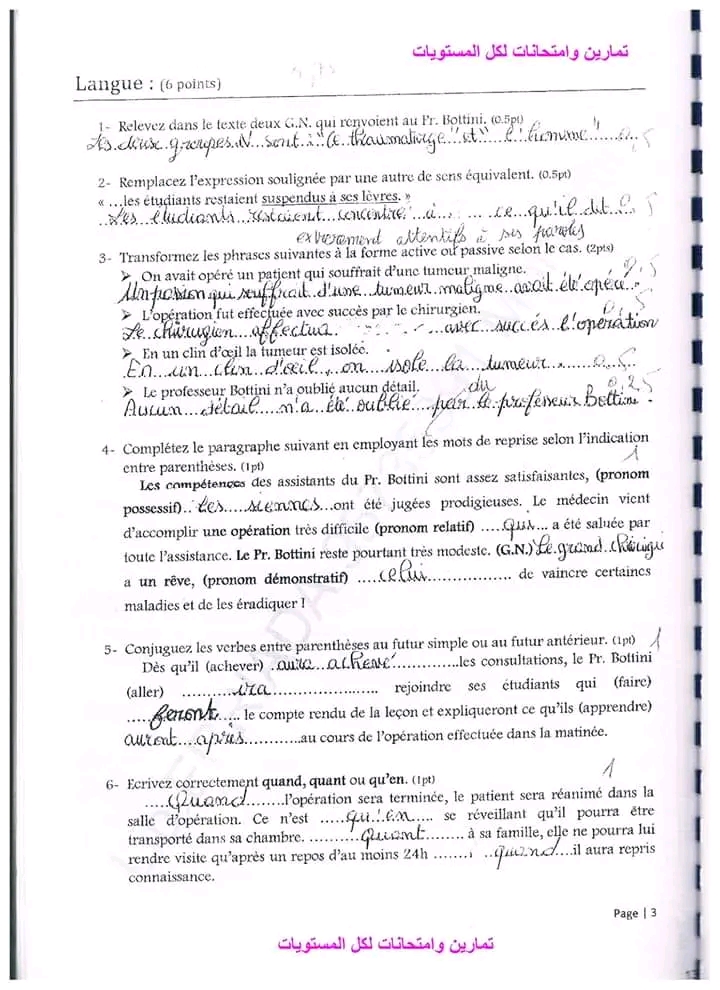 تمارين وامتحانات لكل المستويات
Langue : (6 points)
1- Relevez dans le texte deux G.N. qui renvoient au Pr. Bottini. (0.5pt)
Les deux groupes N sont : "Ce thaumaturge" et "l'homme" 0,5
2- Remplacez l'expression soulignée par une autre de sens équivalent. (0.5pt)
« ...les étudiants restaient suspendus à ses lèvres. »
Les étudiants restaient concentré à ce qu'il dit 0,5
extrêmement attentifs à ses paroles
3- Transformez les phrases suivantes à la forme active ou passive selon le cas. (2pts)
➢ On avait opéré un patient qui souffrait d'une tumeur maligne. 0,5
Un passion qui souffrait d'une tumeur maligne avait été opéré
➢ L'opération fut effectuée avec succès par le chirurgien. 0,5
Le chirugien effectua avec succés l'opération
➢ En un clin d'œil la tumeur est isolée.
En un clin d'œil, on isole la tumeur 0,5
➢ Le professeur Bottini n'a oublié aucun détail. du 0,25
Aucun détail n'a été oublié par le professeur Bottini.
4- Complétez le paragraphe suivant en employant les mots de reprise selon l'indication
entre parenthèses. (1pt) 1
Les compétences des assistants du Pr. Bottini sont assez satisfaisantes, (pronom
possessif)..Les....siennes...ont été jugées prodigieuses. Le médecin vient
d'accomplir une opération très difficile (pronom relatif) .....qui... a été saluée par
toute l'assistance. Le Pr. Bottini reste pourtant très modeste. (G.N.) Le grand chirugie
a un rêve, (pronom démonstratif) ....celui................ de vaincre certaines
maladies et de les éradiquer !
5- Conjuguez les verbes entre parenthèses au futur simple ou au futur antérieur. (1pt) 1
Dès qu'il (achever) .aura achevé.............les consultations, le Pr. Bottini
(aller) ...........ira..................... rejoindre ses étudiants qui (faire)
.....feront..... le compte rendu de la leçon et expliqueront ce qu'ils (apprendre)
auront....apris...........au cours de l'opération effectuée dans la matinée.
6- Ecrivez correctement quand, quant ou qu'en. (1pt) 1
.....Quand........l'opération sera terminée, le patient sera réanimé dans la
salle d'opération. Ce n'est .....qu'en.... se réveillant qu'il pourra être
transporté dans sa chambre. ..........Quant........ à sa famille, elle ne pourra lui
rendre visite qu'après un repos d'au moins 24h ........quand....il aura repris
connaissance.
Page | 3
تمارين وامتحانات لكل المستويات